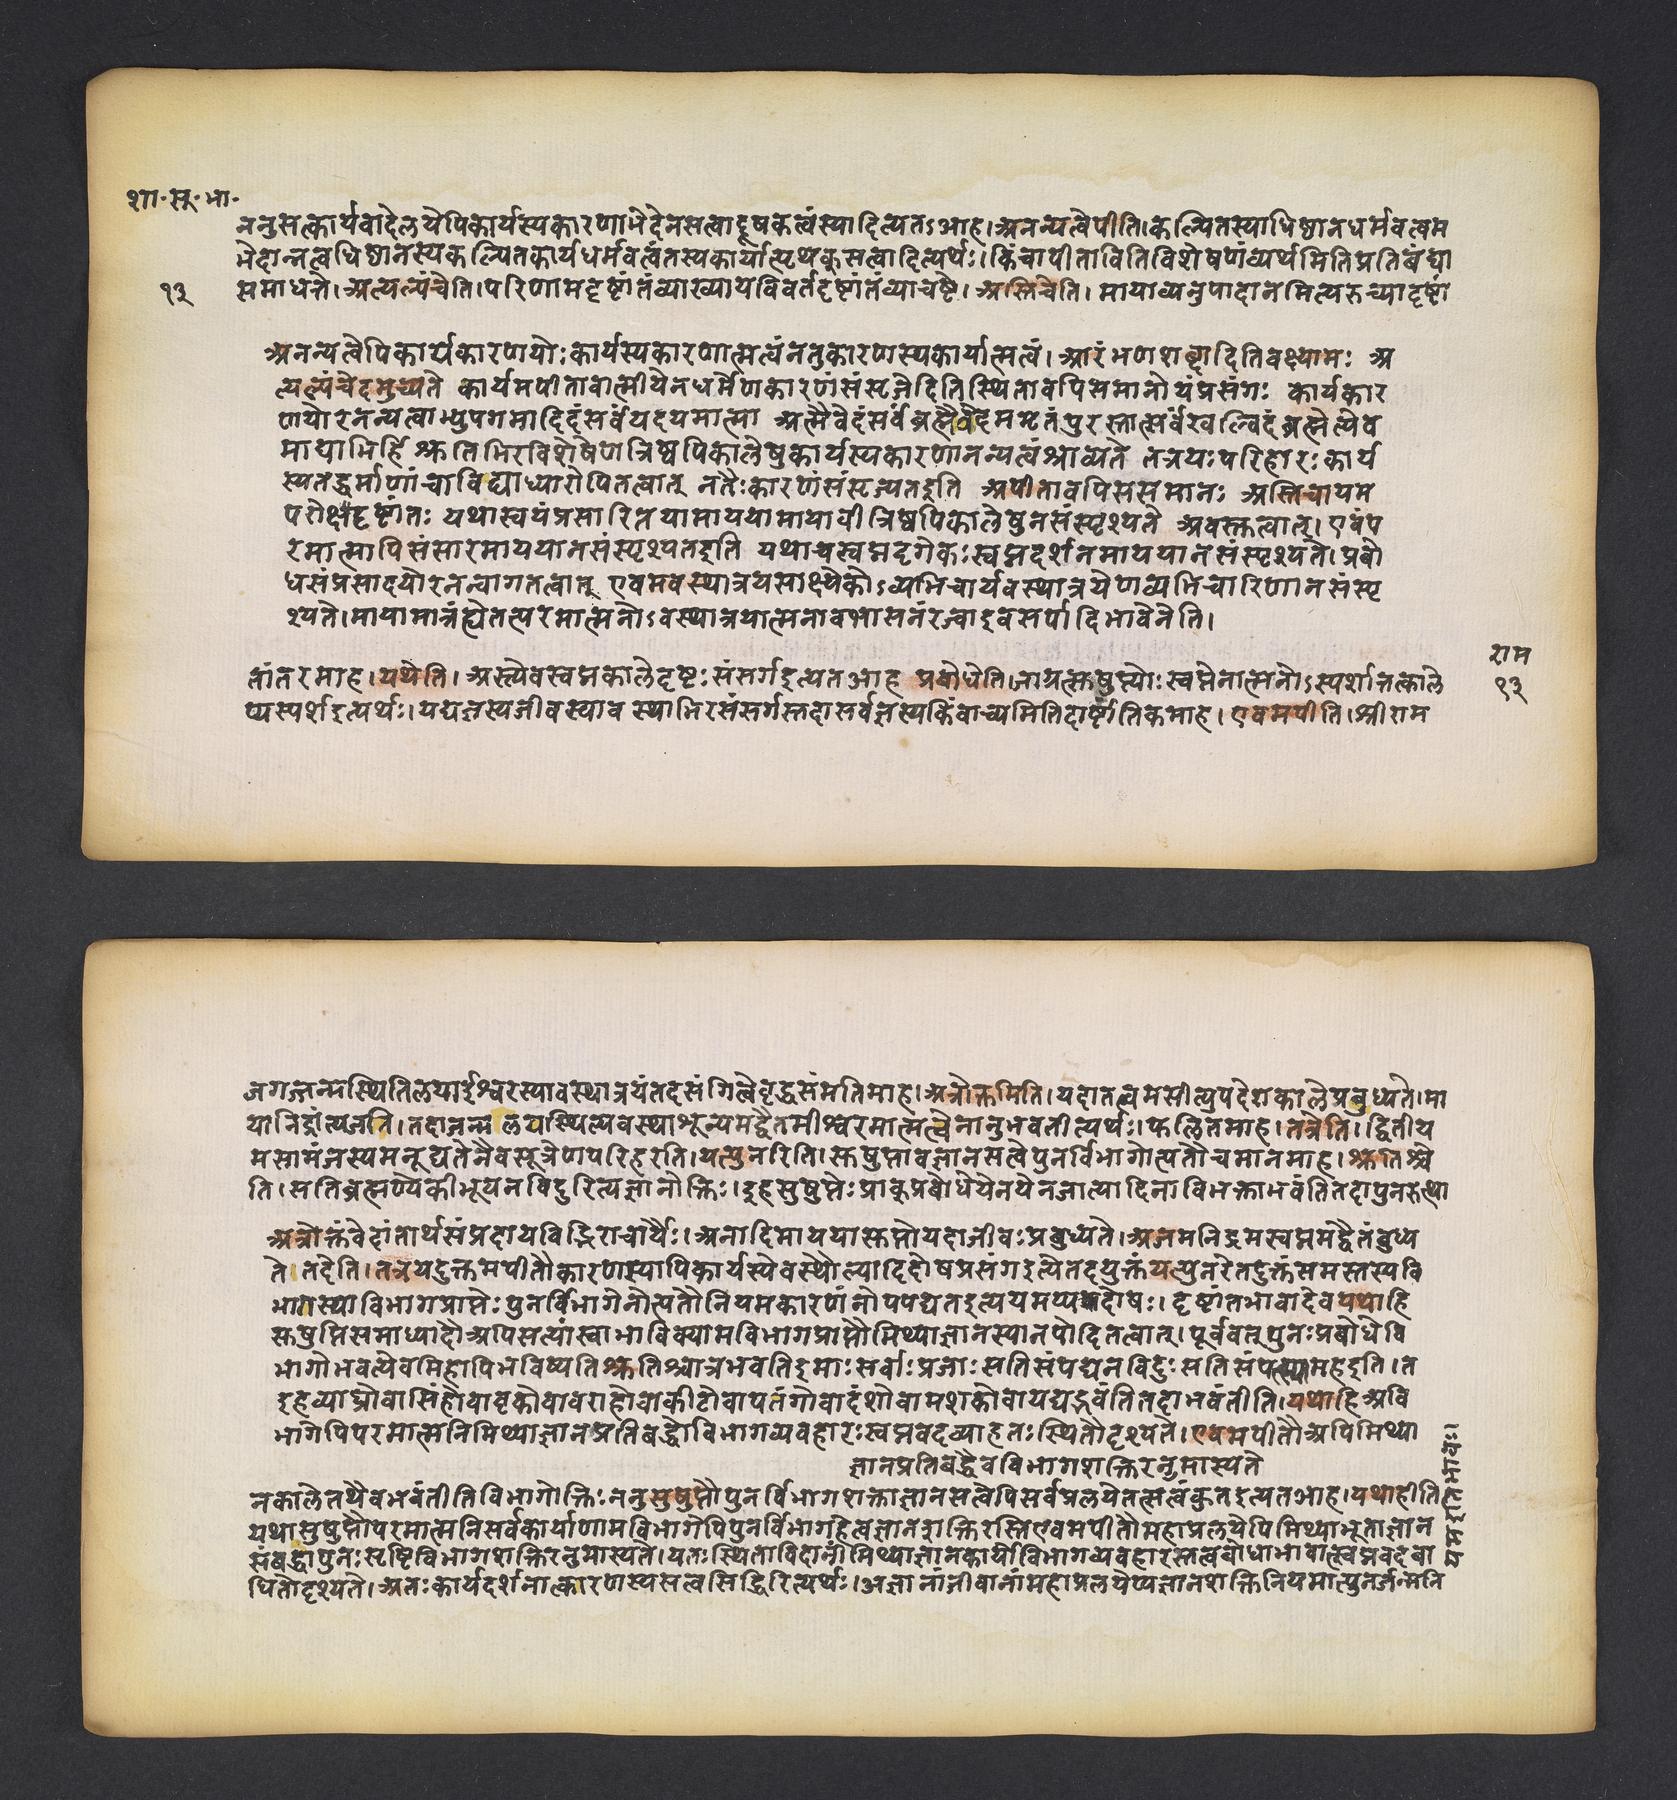 शा॰सू॰भा॰
ननुसत्कार्यवादेलयेपिकार्यस्यकारणाभेदेनसत्वाद्दूषकत्वंस्यादित्यतऽआह।अनन्यत्वेपीति।कल्पितस्याधिष्ठानधर्मवत्वम
भेदान्नत्वधिष्ठानस्यकल्पितकार्यधर्मवत्वंतस्यकार्यात्पृथक्सत्वादित्यर्थः।किंचापीतावितिविशेषणंव्यर्थमितिप्रतिबंद्या
१३
समाधत्ते।अत्यल्पंचेति।परिणामदृष्टांतंव्याख्यायविवर्तदृष्टांतंव्याचष्टे।अस्तिचेति।मायाव्यनुपादानमित्यरुच्यादृष्टां
अनन्यत्वेपिकार्यकारणयोःकार्यस्यकारणात्मत्वंनतुकारणस्यकार्यात्मत्वं।आरंभणशब्दादितिवक्ष्यामः अ
त्यल्पंचेदमुच्यते कार्यमपीतावात्मीयेनधर्मेणकारणंसंसृजेदिति।स्थितावपिसमानोयंप्रसंगः कार्यकार
णयोरनन्यत्वाभ्युपगमादिदंसर्वंयदयमात्मा आत्मैवेदंसर्वंब्रह्मैवेदममृतंपुरस्तात्सर्वंखल्विदंब्रह्मेत्येव
माद्याभिर्हिश्रुतिभिरविशेषेणत्रिष्वपिकालेषुकार्यस्यकारणानन्यत्वंश्राव्यते तत्रयःपरिहारःकार्य
स्यतद्धर्माणांचाविद्याध्यारोपितत्वात् नतैःकारणंसंसृज्यतइति अपीतावपिससमानः अस्तिचायम
परोक्षदृष्टांतः यथास्वयंप्रसारितयामाययामायावीत्रिष्वपिकालेषुनसंस्पृश्यते अवस्तुत्वात्।एवंप
रमात्मापिसंसारमाययानसंस्पृश्यतइति यथाचस्वप्नदृगेकःस्वप्नदर्शनमाययानसंस्पृश्यते।प्रबो
धसंप्रसादयोरनन्वागतत्वात् एवमवस्थात्रयसाक्ष्येकोऽव्यभिचार्यवस्थात्रयेणव्यभिचारिणानसंस्पृ
श्यते।मायामात्रंह्येतत्परमात्मनोऽवस्थात्रयात्मनावभासनंरज्वाइवसर्पादिभावेनेति।
राम
तांतरमाह।यथेति।अस्त्येवस्वप्नकालेदृष्टःसंसर्गइत्यतआह प्रबोधेति।जाग्रत्सुषुप्त्योःस्वप्नेनात्मनोऽस्पर्शात्तत्काले
१३
प्यस्पर्शइत्यर्थः।यद्यज्ञस्यजीवस्यावस्थाभिरसंसर्गस्तदासर्वज्ञस्यकिंवाच्यमितिदार्ष्टांतिकमाह।एवमपीति।श्रीराम
जगज्जन्मस्थितिलयाईश्वरस्यावस्थात्रयंतदसंगित्वेवृद्धसंमतिमाह।अत्रोक्तमिति।यदातत्वमसीत्युपदेशकालेप्रबुध्यते।मा
यानिद्रांत्यजति।तदाजन्मलयस्थित्यवस्थाशून्यमद्वैतमीश्वरमात्मत्वेनानुभवतीत्यर्थः।फलितमाह।तत्रेति।द्वितीय
मसामंजस्यमनूद्यतेनैवसूत्रेणपरिहरति।यत्पुनरिति।सुषुप्तावज्ञानसत्वेपुनर्विभागोत्पत्तौचमानमाह।श्रुतिश्चे
ति।सतिब्रह्मण्येकीभूयनविदुरित्यज्ञानोक्तिः।इहसुषुप्तेःप्राक्प्रबोधेयेनयेनजात्यादिनाविभक्ताभवंतितदापुनरुत्था
अत्रोक्तंवेदांतार्थसंप्रदायविद्भिराचार्यैः।अनादिमाययासुप्तोयदाजीवःप्रबुध्यते।अजमनिद्रमस्वप्नमद्वैतंबुध्य
ते।तदेति।तत्रयदुक्तमपीतौकारणस्यापिकार्यस्येवस्थौल्यादिदोषप्रसंगइत्येतदयुक्तंयत्पुनरेतदुक्तंसमस्तस्यवि
भागस्याविभागप्राप्तेःपुनर्विभागेनोत्पत्तौनियमकारणंनोपपद्यतइत्ययमप्यदोषः।दृष्टांतभावादेवयथाहि
सुषुप्तिसमाध्यादौअपिसत्यांस्वाभाविक्यामविभागप्राप्तौमिथ्याज्ञानस्यानपोदितत्वात्।पूर्ववत्पुनःप्रबोधेवि
भागोभवत्येवमिहापिभविष्यतिश्रुतिश्चात्रभवतिइमाःसर्वाःप्रजाःसतिसंपद्यनविदुःसतिसंपत्स्यामहइति।त
इहव्याघ्रोवासिंहोवावृकोवावराहोवाकीटोवापतंगोवादंशोवामशकोवायद्यद्भवंतितदाभवंतीति।यथाहिअवि
भागेपिपरमात्मनिमिथ्याज्ञानप्रतिबद्धोविभागव्यवहारःस्वप्नवदव्याहतःस्थितौदृश्यते।एवमपीतौअपिमिथ्या
ज्ञानप्रतिबद्धैवविभागशक्तिरनुमास्यते
नकालेतथैवभवंतीतिविभागोक्तिःननुसुषुप्तौपुनर्विभागशक्ताज्ञानसत्वेपिसर्वप्रलयेतत्सत्वंकुतइत्यतआह।यथाहीति।
यथासुषुप्तौपरमात्मनिसर्वकार्याणामविभागेपिपुनर्विभागहेत्वज्ञानशक्तिरस्तिएवमपीतौमहाप्रलयेपिमिथ्याभूताज्ञान
संबद्धापुनःसृष्टिविभागशक्तिरनुमास्यते।यतःस्थिताविदानीं।मिथ्याज्ञानकार्योविभागव्यवहारस्तत्वबोधाभावात्स्वप्नवदबा
धितोदृश्यते।अतःकार्यदर्शनात्कारणस्यसत्वसिद्धिरित्यर्थः।अज्ञानांजीवानांमहाप्रलयेप्यज्ञानशक्तिनियमात्पुनर्जन्मनि